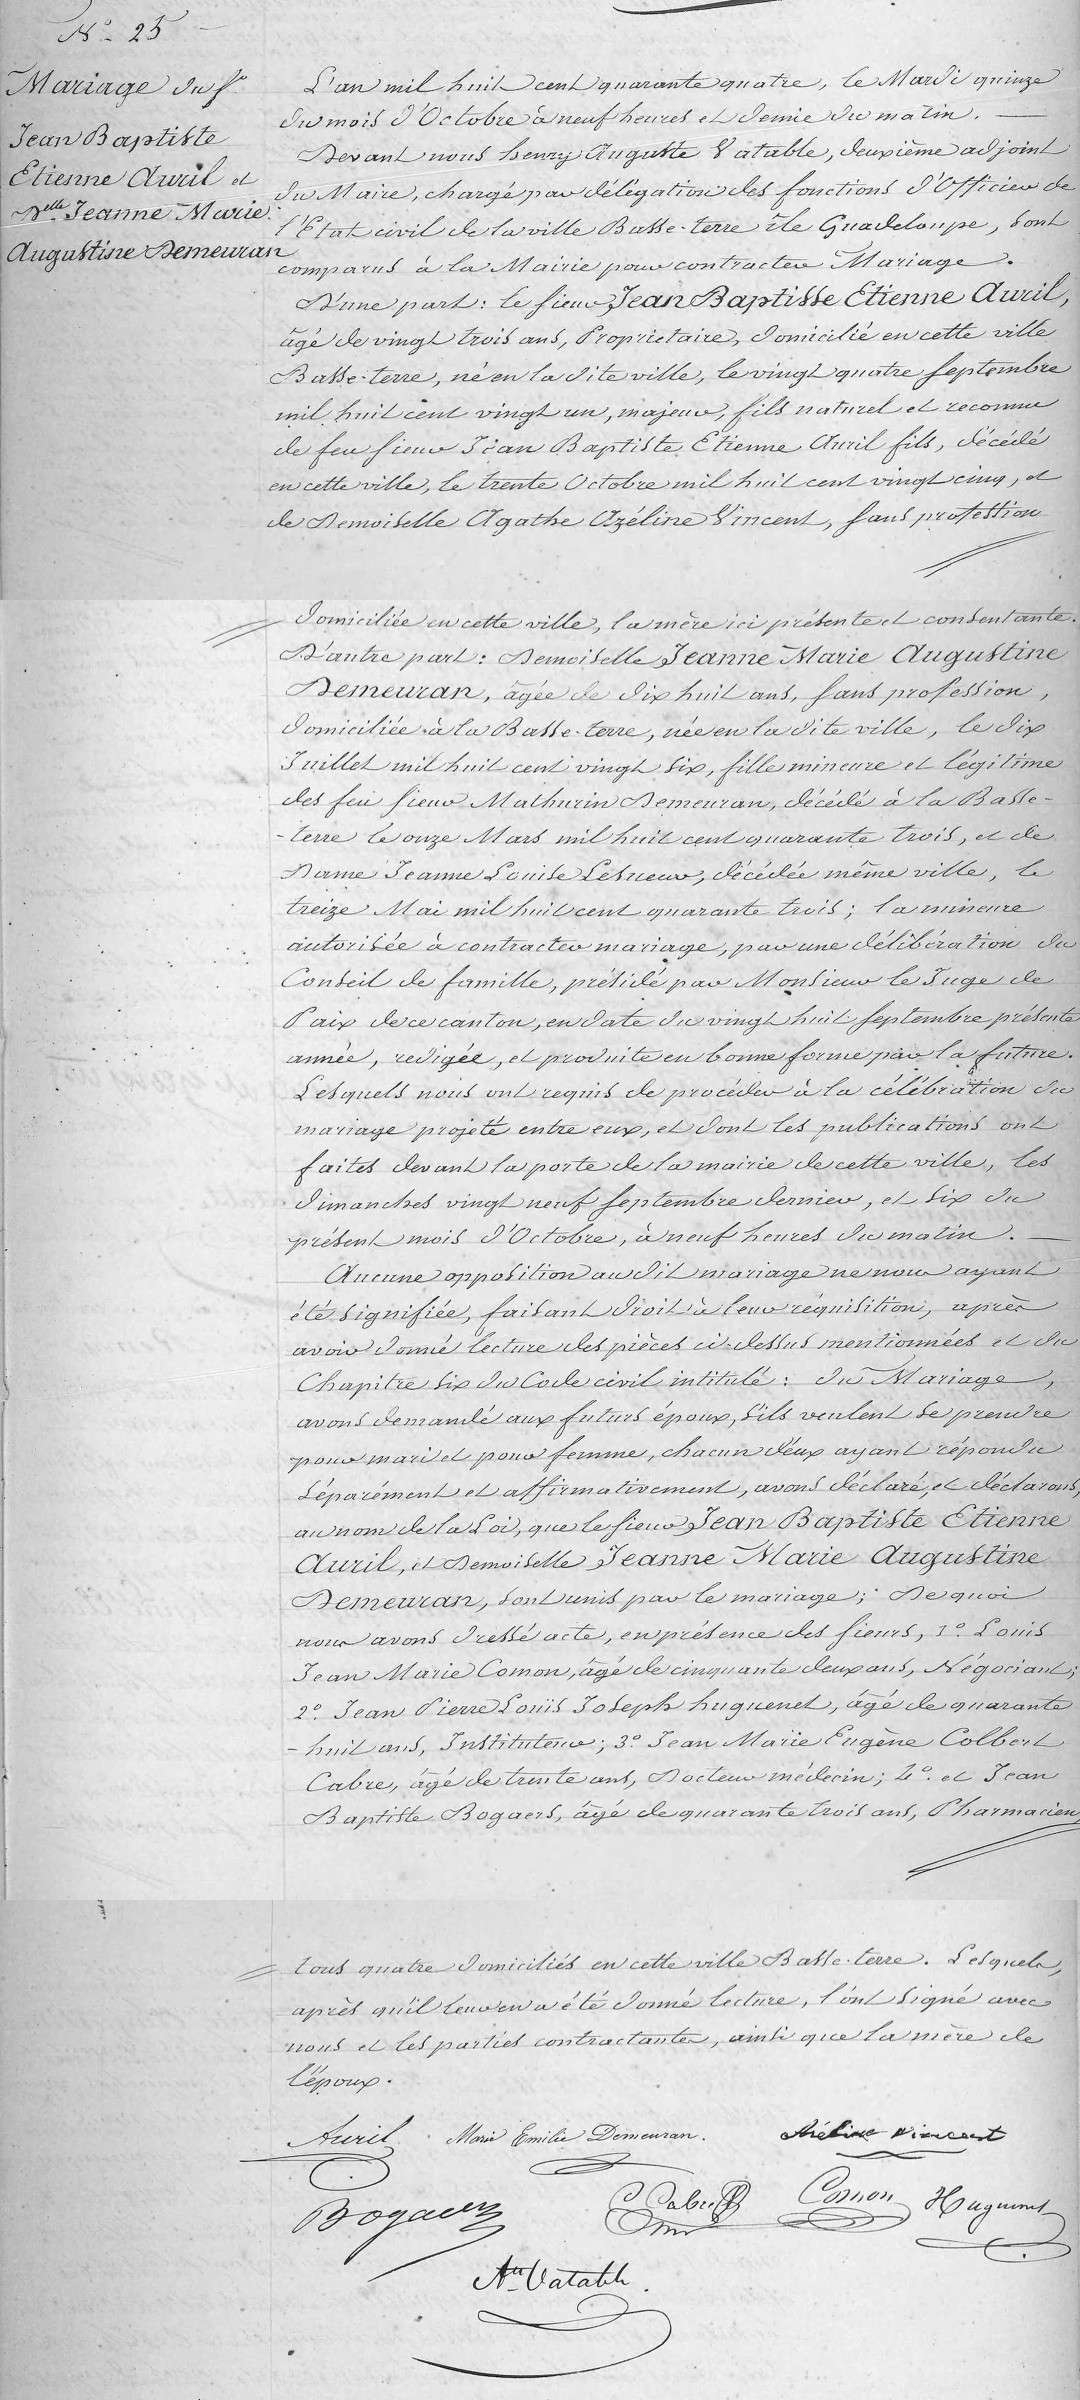 N° 25
Mariage du Sr
Jean Baptiste
Etienne Avril et
Dlle Jeanne Marie
Augustine Demeuran
L'an mil huit cent quarante quatre, le Mardi quinze
du mois d'Octobre à neuf heures et demie du matin.
Devant nous henry Auguste Vatable, deuxième adjoint
du Maire, chargé par délégation des fonctions d'Officier de
l'Etat civil de la ville Basse-terre île Guadeloupe, sont
comparus à la Mairie pour contracter Mariage.
D'une part : le sieur Jean Baptisse Etienne Avril,
âgé de vingt trois ans, Propriétaire, domicilié en cette ville
Basse-terre, né en la dite ville, le vingt quatre septembre
mil huit cent vingt un, majeur, fils naturel et reconnu
de feu sieur Jean Baptiste Etienne Avril fils, décédé
en cette ville, le trente Octobre mil huit cent vingt cinq, et
de Demoiselle Agathe Azéline Vincent, sans profession
domiciliée en cette ville, la mère ici présente et consentante.
D'autre part : Demoiselle Jeanne Marie Augustine
Demeuran, âgée de dix huit ans, sans profession,
domiciliée à la Basse-terre, née en la dite ville, le dix
Juillet mil huit cent vingt six, fille mineure et légitime
des feu sieur Mathurin Demeuran, décédé à la Basse-
-terre le onze Mars mil huit cent quarante trois, et de
Dame Jeanne Louise Lesueur, décédée même ville, le
treize Mai mil huit cent quarante trois ; la mineure
autorisée à contracter mariage, par une délibération du
Conseil de famille, présidé par Monsieur le Juge de
Paix de ce canton, en date du vingt huit septembre présente
année, redigée, et produite en bonne forme par la future.
Lesquels nous ont requis de procéder à la célébration du
mariage projetté entre eux, et dont les publications ont
faites devant la porte de la mairie de cette ville, les
dimanches vingt neuf septembre dernier, et six du
présent mois d'Octobre, à neuf heures du matin.
Aucune opposition au dit mariage ne nous ayant
été signifiée, faisant droit à leur réquisition, après
avoir donné lecture des pièces ci-dessus mentionnées et du
Chapitre six du Code civil intitulé : du Mariage,
avons demandé aux futurs époux, s'ils veulent se prendre
pour mari et pour femme, chacun d'eux ayant répondu
séparément et affirmativement, avons déclaré, et déclarons,
au nom de la Loi, que le sieur Jean Baptiste Etienne
Avril, et Demoiselle Jeanne Marie Augustine
Demeuran, sont unis par le mariage ; De quoi
nous avons dressé acte, en présence des sieurs, 1°. Louis
Jean Marie Comon, âgé de cinquante deux ans, Négociant ;
2°. Jean Pierre Louis Joseph huguenet, âgé de quarante
-huit ans, Instituteur ; 3°. Jean Marie Eugène Colbert
Cabre, âgé de trente ans, Docteur médecin ; 4°. et Jean
Baptiste Bogaers, âgé de quarante trois ans, Pharmacien,
tous quatre domiciliés en cette ville Basse-terre. Lesquels,
après qu'il leur en a été donné lecture, l'ont signé avec
nous et les parties contractantes, ainsi que la mère de
l'époux.
Avril Marie Emilie Demeuran. Azéline Vincent
Bogaers C Cabre Comon Huguenet
Ate Vatable.